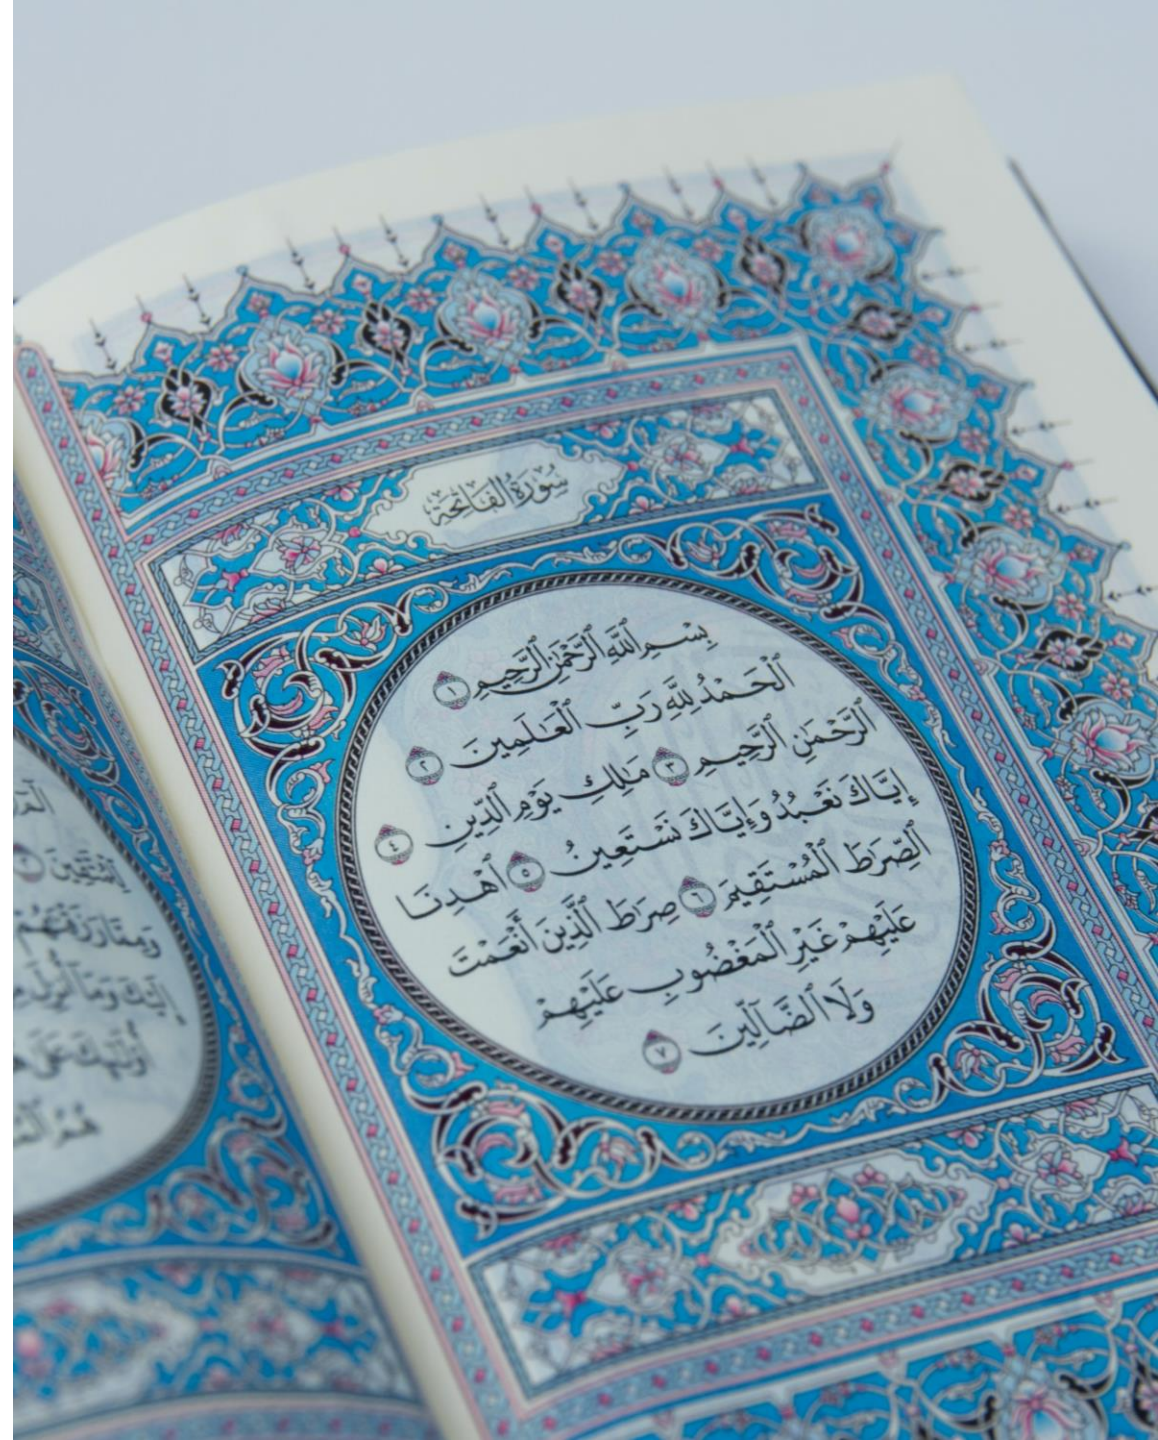 سُورَةُ الفَاتِحَةِ
بِسْمِ ٱللَّهِ ٱلرَّحْمَٰنِ ٱلرَّحِيمِ ١
ٱلْحَمْدُ لِلَّهِ رَبِّ ٱلْعَٰلَمِينَ ٢
ٱلرَّحْمَٰنِ ٱلرَّحِيمِ ٣ مَٰلِكِ يَوْمِ ٱلدِّينِ ٤
إِيَّاكَ نَعْبُدُ وَإِيَّاكَ نَسْتَعِينُ ٥ ٱهْدِنَا
ٱلصِّرَٰطَ ٱلْمُسْتَقِيمَ ٦ صِرَٰطَ ٱلَّذِينَ أَنْعَمْتَ
عَلَيْهِمْ غَيْرِ ٱلْمَغْضُوبِ عَلَيْهِمْ
وَلَا ٱلضَّآلِّينَ ٧
لِّلْمُتَّقِينَ ٢
وَمِمَّا رَزَقْنَٰهُمْ
إِلَيْكَ وَمَآ أُنزِلَ
أُو۟لَٰٓئِكَ عَلَىٰ
هُمُ